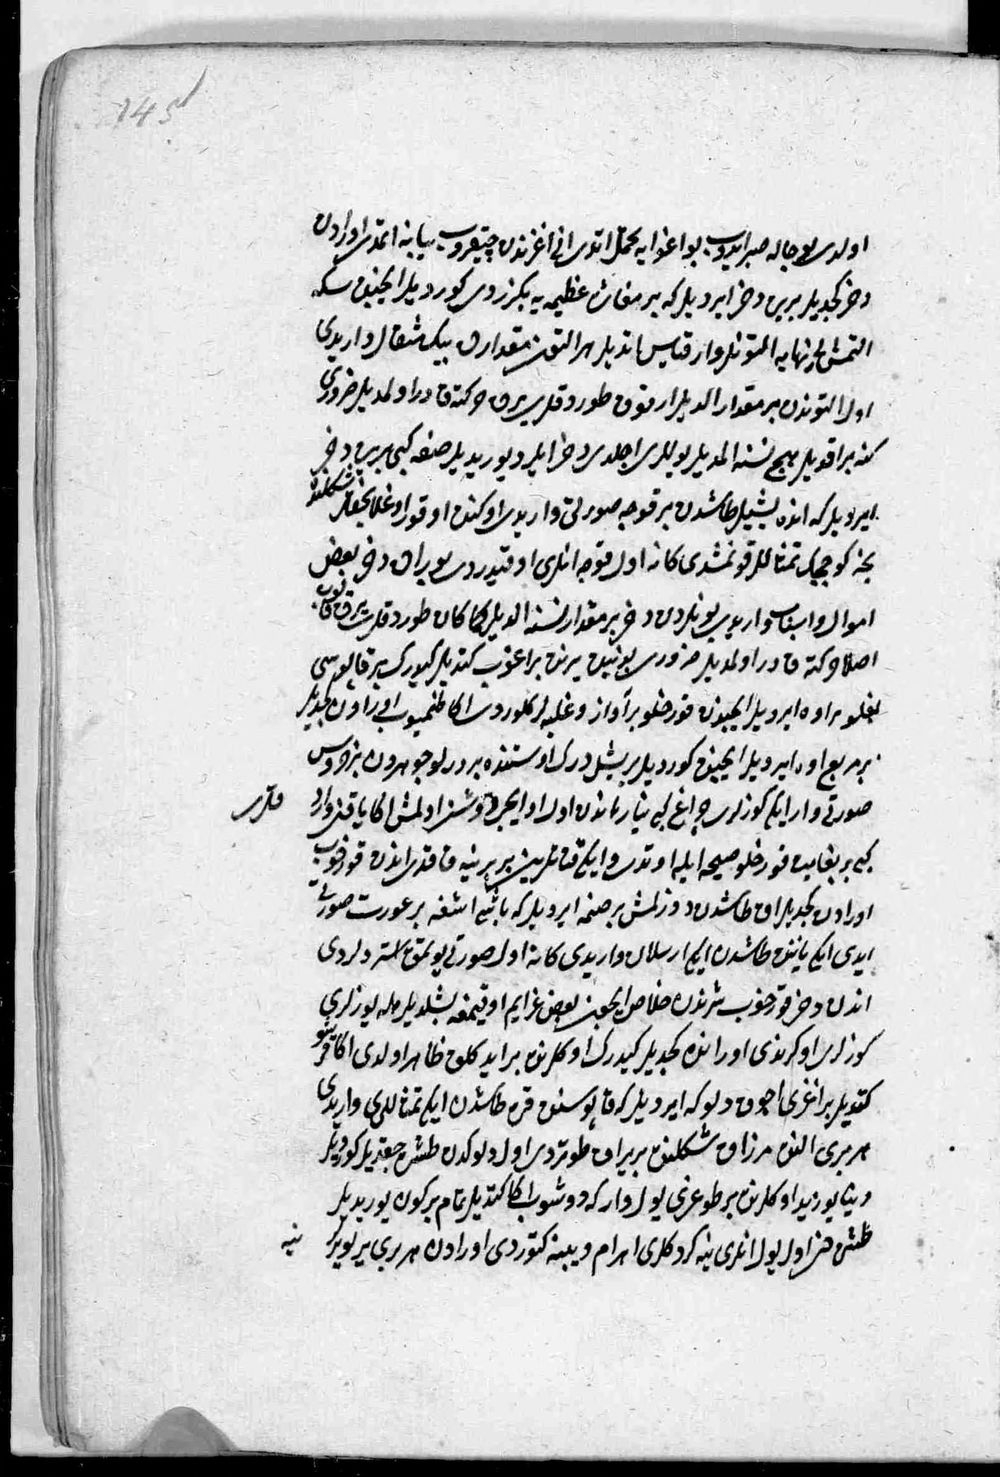 145
اولدی بو حاله صبر ایدوب بو اغوایه تحمل اتدی انی اغزندن چیقروب یبانه اتمدی اورادن
دخی کچدیلر برین دخی ایردیلر که بر مغارۀ عظیمه یه بکزردی کوردیلر ایچنده سکه
التمش بی نهایه التونلر وار قیاس اتدیلر هر التون مقداری بیک مثقال واریدی
اول التوندن بر مقدار الدیلر ارتوق طوردقلری یردن حرکته قادر اولمدیلر ضروری
کنه براقویلر هیچ نسنه المدیلر یوللری اچلدی دخی ایلرو یوریدیلر صفه کبی بریره دخی
ایردیلر که انده یشیل طاشدن بر قوجه صورتی واریدی اوکنده اوقور اوغلانجقلر شکلنده
نجه کوچجک تمثاللر قونمشدی کانه اول قوجه انلری اوقیدردی بو یرده دخی بعض
اموال و اسباب واریدی بونلردن دخی بر مقدار نسنه الدیلر کاکان طوردقلری یرده قالوب
اصلا حرکته قادر اولمدیلر ضروری بونی ینه یرنه براغوب کتدیلر کیدرک بر قاپوسی
بغلو بر اوه ایردیلر ایچندن قورخلو بر آواز و غلبه لر کلوردی اکا طنمیوب اورادن کچدیلر
بر مربع اوه ایردیلر ایچنده کوردیلر بر یشل درک اوستنده بر درلو جوهردن بر خروس
صورتی وار ایکی کوزلری چراغ کبی ینار یانندن اول او ایچره روشن اولمش اکا یاقین وارد
قلری
کبی بر بغایت قورخلو صیحه ایله اوتدی و ایکی قنادلرین بر برینه قاقدی اندن قورخوب
اورادن کچدیلر اق طاشدن دوزلمش بر صنمه ایردیلر که باشی اشغه بر عورت صورتی
ایدی ایکی یاننده طاشدن ایکی ارسلان واریدی کانه اول صورتی یوتمق استرلردی
اندن دخی قورخوب شرندن خلاص ایچون بعض عزایم اوقیمغه بشلدیلر یوزلری
کوزلری اوکرندی اوراندن کچدیلر کیدرک اوکلرنده بر ایدکلق ظاهر اولدی اکا قرشو
کتدیلر بر اغزی اچوق دلوکه ایردیلر که قاپوسنده قره طاشدن ایکی تمثاللری واریدی
هر بری النده مزراق شکلنده بر یراق طوتردی اول دلوکدن طشره چقدیلر کوردیلر
دنیا یوزیدر اوکلرنده بر طوغری یول وار که دوشوب اکا کتدیلر تمام بر کون یوریدیلر
طشره هنر اول یول انلری ینه کردکلری اهرام دیبینه کتوردی اورادن هر بری یرلو یرینه
ینه